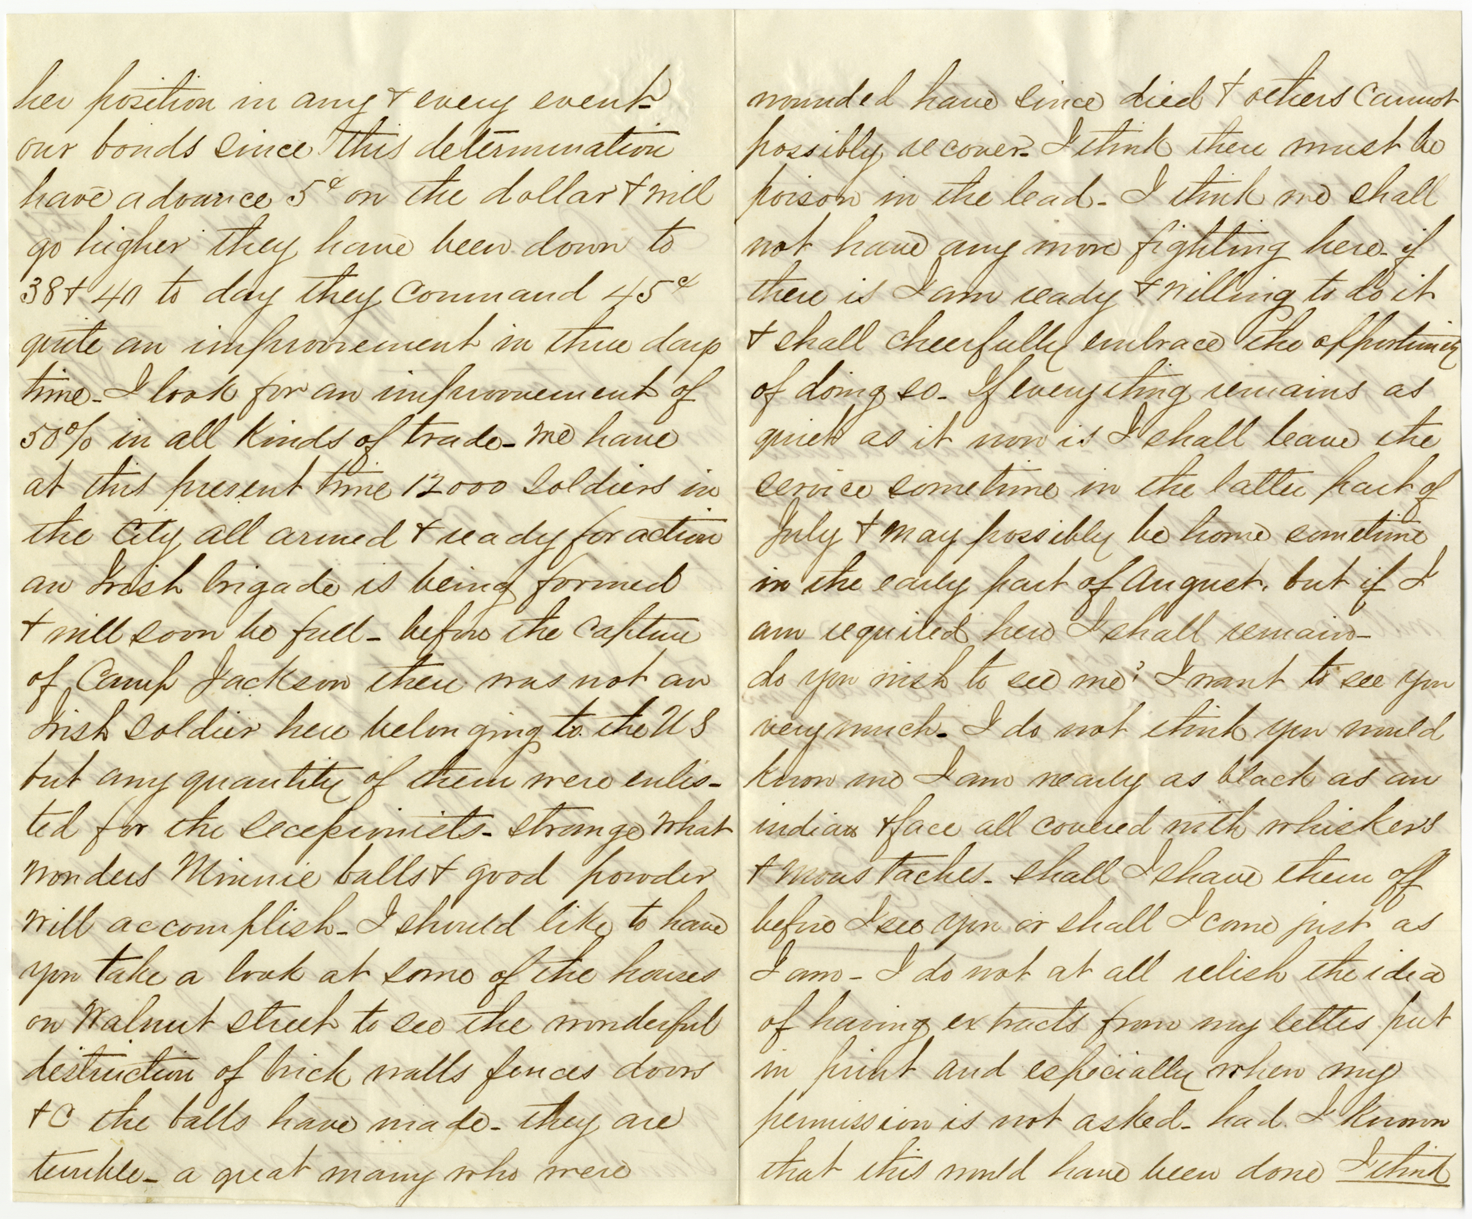 her position in any & every event-
our bonds since this determination
have advance 5¢ on the dollar & will
go higher they have been down to
38 & 40 to day they command 45¢
quite an improovement in three days
time- I look for an improovement of
50% in all kinds of trade- We have
at this present time 12000 soldiers in
the City all armed & ready for action
an Irish brigade is being formed
& will soon be full- before the capture
of Camp Jackson there was not an
Irish soldier here belonging to the US
but any quantity of them were enlis-
ted for the secessionists- strange what
wonders Minnie balls & good powder
will accomplish- I should like to have
you take a look at some of the houses
on Walnut street to see the wonderful
distruction of brick walls fences doors
&C the balls have made- they are
terrible- a great many who were
wounded have since died & others cannot
possibly recover- I think there must be
poison in the lead- I think we shall
not have any more fighting here- if
there is I am ready & willing to do it
& shall cheerfully embrace the opportunity
of doing so- If everything remains as
quiet as it now is I shall leave the
service sometime in the latter part of
July & may possibly be home sometime
in the early part of August. but if I
am required here I shall remain-
do you wish to see me? I want to see you
very much- I do not think you would
know me I am nearly as black as an
indian & face all covered with whiskers
& moustaches- shall I shave them off
before I see you or shall I come just as
I am- I do not at all relish the idea
of having extracts from my letters put
in print and especially when my
permission is not asked- had I known
that this would have been done I think